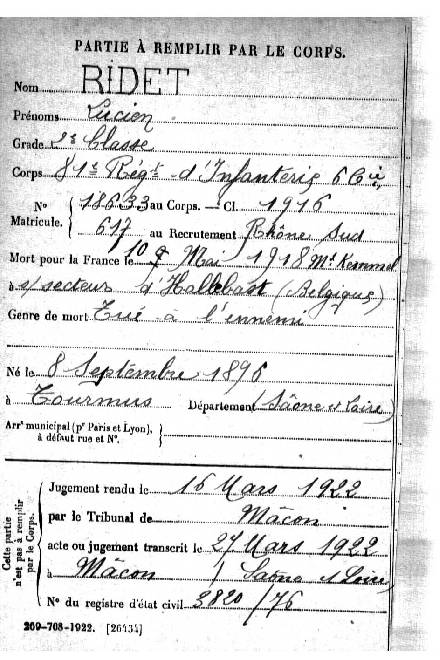 PARTIE À REMPLIR PAR LE CORPS.
Nom RIDET
Prénoms Lucien
Grade 2e Classe
Corps 81e Régt d'Infanterie 6 Cie
No 18633 au Corps. — Cl. 1916
Matricule. 617 au Recrutement Rhône Sud
Mort pour la France le 10 Mai 1918 Mt Kemmel
à s/secteur d'Hallebast (Belgique)
Genre de mort Tué à l'ennemi
Né le 8 Septembre 1896
à Tournus Département (Saône et Loire)
Arrt municipal (pr Paris et Lyon),
à défaut rue et No.
Cette partie
n'est pas à remplir
par le Corps.
Jugement rendu le 16 Mars 1922
par le Tribunal de Mâcon
acte ou jugement transcrit le 27 Mars 1922
à Mâcon (Saône et Loire)
No du registre d'état civil 3820/76
209-708-1922. [26434]